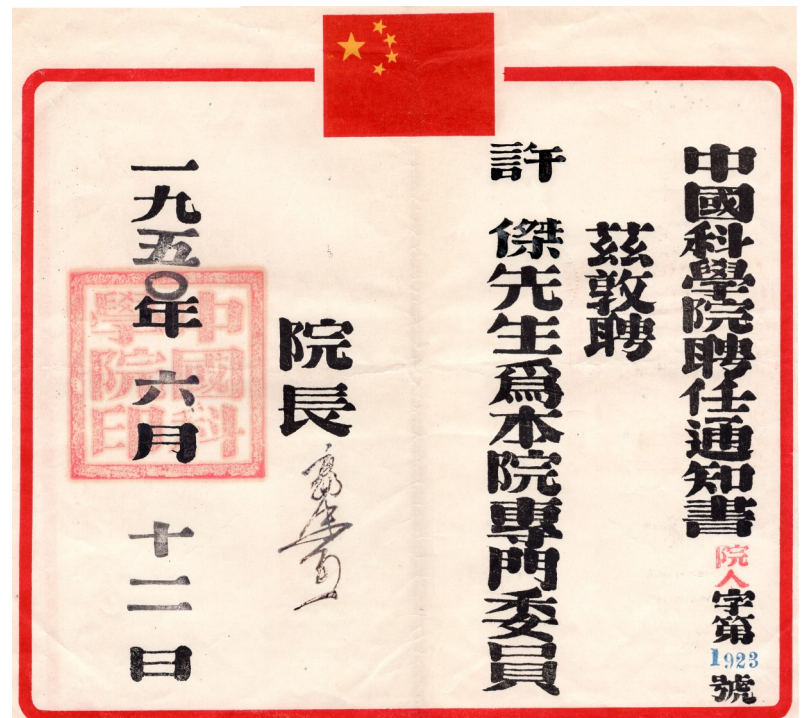 中國科學院聘任通知書 院人字第1923號
茲敦聘
許 傑先生爲本院專門委員
院長 郭沫若
一九五〇年 六月 十二日
中國科
學院印